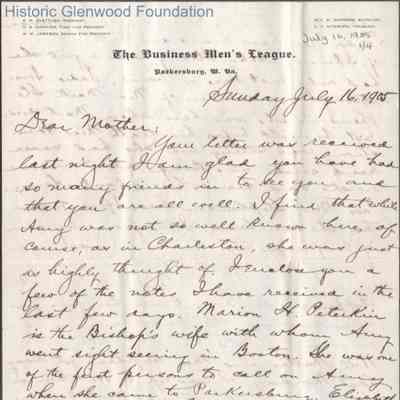 Historic Glenwood Foundation
July 16, 1905
1/4
The Business Men's League.
Parkersburg, W. Va.
Sunday July 16, 1905
Dear Mother;
Your letter was received
last night I am glad you have had
so many friends in to see you and
that you are all well. I find that while
Amy was not so well known here, of
course, as in Charleston, she was just
as highly thought of. I enclose you a
few of the notes I have received in the
last few days. Marion H. Peterkin
is the Bishop's wife with whom Amy
went sight seeing in Boston. She was one
of the first persons to call on Amy
when she came to Parkersburg. Elizabeth